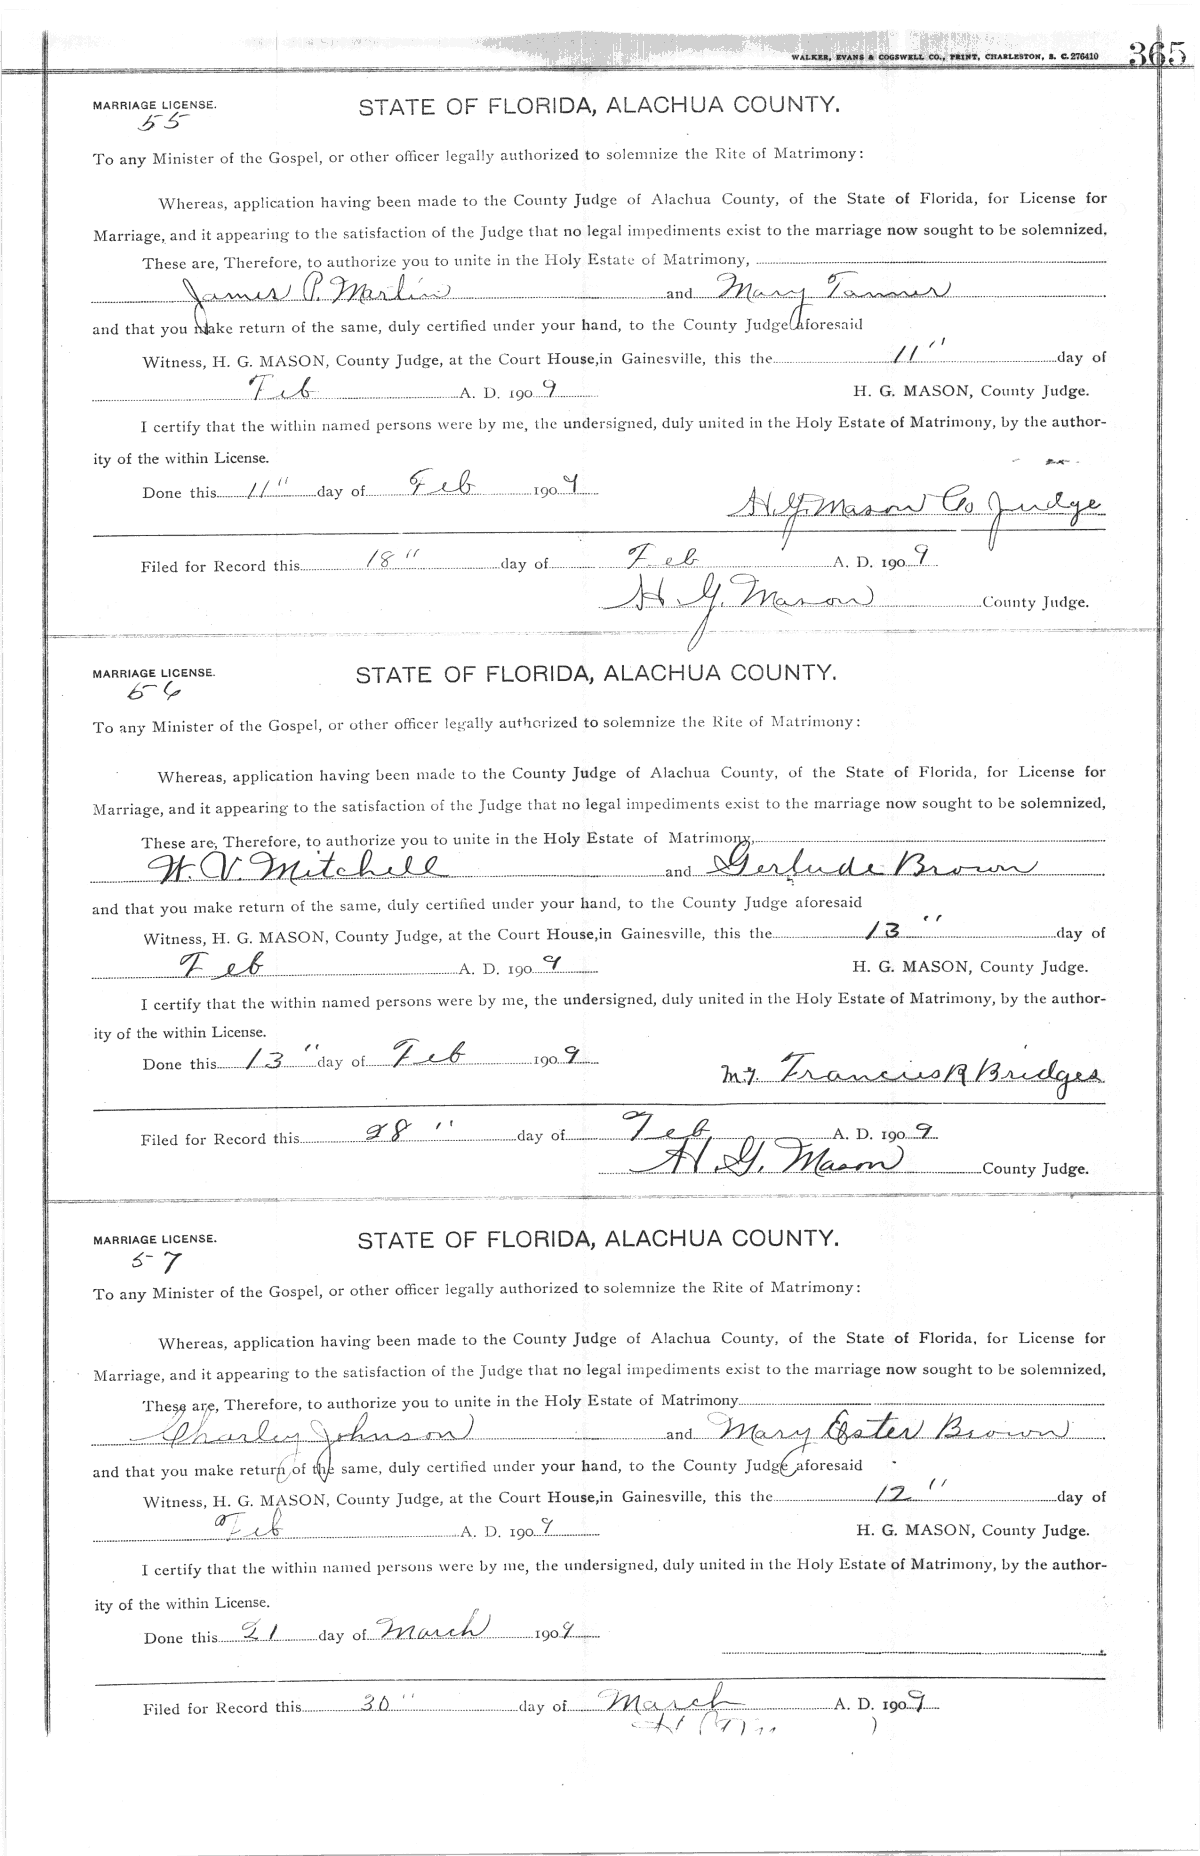 WALKER, EVANS & COGSWELL CO., PRINT, CHARLESTON, S. C. 276410 365
MARRIAGE LICENSE. STATE OF FLORIDA, ALACHUA COUNTY.
55
To any Minister of the Gospel, or other officer legally authorized to solemnize the Rite of Matrimony:
Whereas, application having been made to the County Judge of Alachua County, of the State of Florida, for License for
Marriage, and it appearing to the satisfaction of the Judge that no legal impediments exist to the marriage now sought to be solemnized,
These are, Therefore, to authorize you to unite in the Holy Estate of Matrimony,
James P. Merlin and Mary Tanner
and that you make return of the same, duly certified under your hand, to the County Judge aforesaid
Witness, H. G. MASON, County Judge, at the Court House, in Gainesville, this the 11" day of
Feb A. D. 1909 H. G. MASON, County Judge.
I certify that the within named persons were by me, the undersigned, duly united in the Holy Estate of Matrimony, by the author-
ity of the within License.
Done this 11" day of Feb 1909
H. G. Mason Co Judge
Filed for Record this 18" day of Feb A. D. 1909
H. G. Mason County Judge.
MARRIAGE LICENSE. STATE OF FLORIDA, ALACHUA COUNTY.
56
To any Minister of the Gospel, or other officer legally authorized to solemnize the Rite of Matrimony:
Whereas, application having been made to the County Judge of Alachua County, of the State of Florida, for License for
Marriage, and it appearing to the satisfaction of the Judge that no legal impediments exist to the marriage now sought to be solemnized,
These are, Therefore, to authorize you to unite in the Holy Estate of Matrimony,
W. V. Mitchell and Gertude Brown
and that you make return of the same, duly certified under your hand, to the County Judge aforesaid
Witness, H. G. MASON, County Judge, at the Court House, in Gainesville, this the 13" day of
Feb A. D. 1909 H. G. MASON, County Judge.
I certify that the within named persons were by me, the undersigned, duly united in the Holy Estate of Matrimony, by the author-
ity of the within License.
Done this 13" day of Feb 1909
Francius R Bridges
Filed for Record this 28" day of Feb A. D. 1909
H. G. Mason County Judge.
MARRIAGE LICENSE. STATE OF FLORIDA, ALACHUA COUNTY.
57
To any Minister of the Gospel, or other officer legally authorized to solemnize the Rite of Matrimony:
Whereas, application having been made to the County Judge of Alachua County, of the State of Florida, for License for
Marriage, and it appearing to the satisfaction of the Judge that no legal impediments exist to the marriage now sought to be solemnized,
These are, Therefore, to authorize you to unite in the Holy Estate of Matrimony
Charley Johnson and Mary Ester Brown
and that you make return of the same, duly certified under your hand, to the County Judge aforesaid
Witness, H. G. MASON, County Judge, at the Court House, in Gainesville, this the 12" day of
Feb A. D. 1909 H. G. MASON, County Judge.
I certify that the within named persons were by me, the undersigned, duly united in the Holy Estate of Matrimony, by the author-
ity of the within License.
Done this 21 day of March 1909
Filed for Record this 30" day of March A. D. 1909